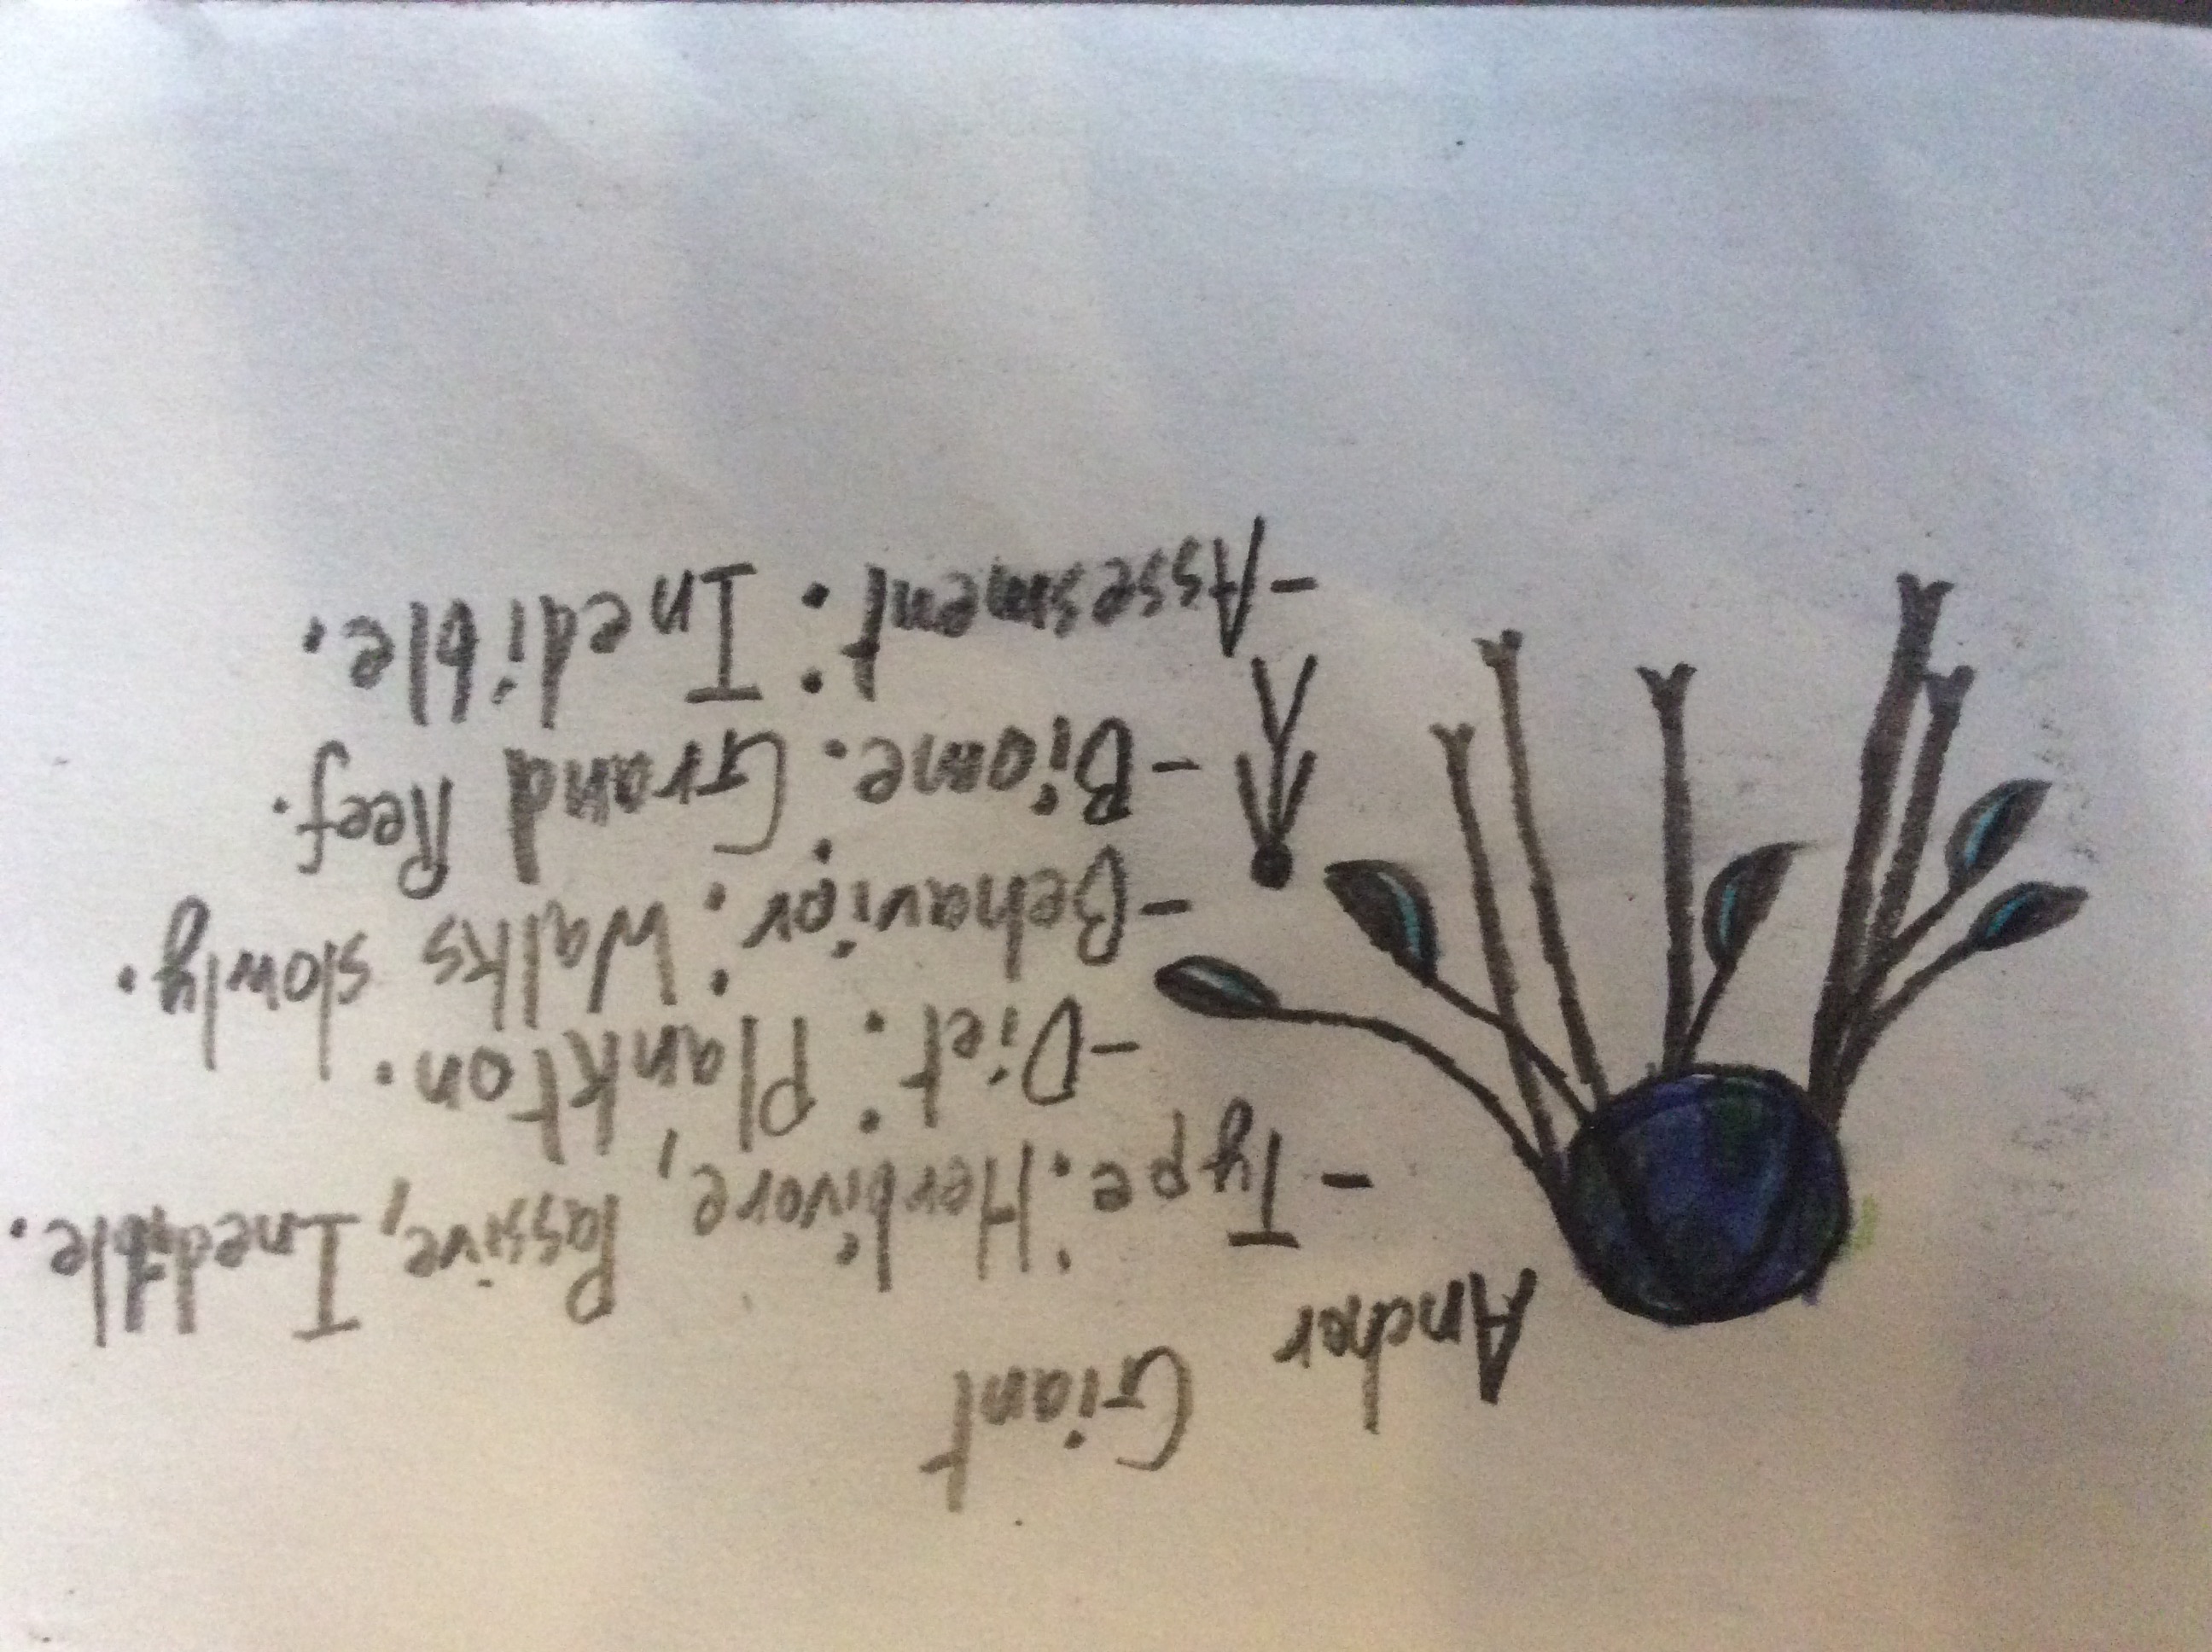 Anchor Giant
-Type: Herbivore, Passive, Inedible.
-Diet: Plankton.
-Behavior: Walks slowly.
-Biome: Grand Reef.
-Assesment: Inedible.